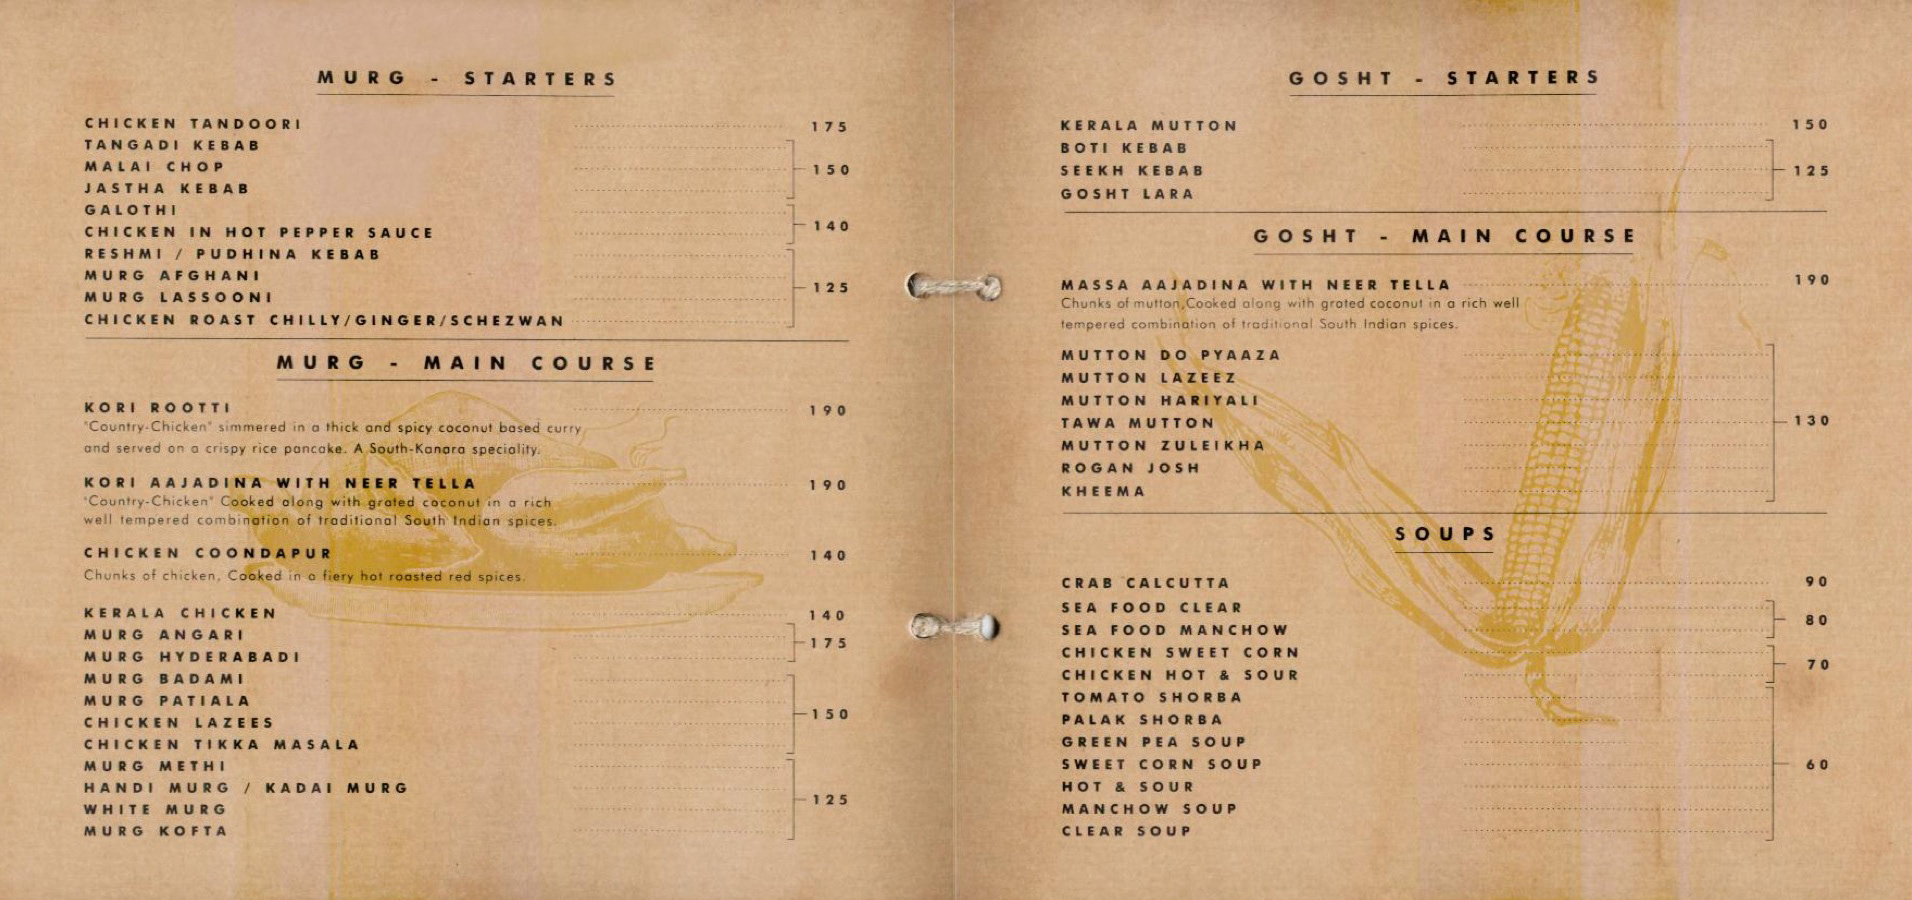 MURG - STARTERS
CHICKEN TANDOORI 175
TANGADI KEBAB
MALAI CHOP 150
JASTHA KEBAB
GALOTHI
CHICKEN IN HOT PEPPER SAUCE 140
RESHMI / PUDHINA KEBAB
MURG AFGHANI
MURG LASSOONI 125
CHICKEN ROAST CHILLY/GINGER/SCHEZWAN
MURG - MAIN COURSE
KORI ROOTTI 190
"Country-Chicken" simmered in a thick and spicy coconut based curry
and served on a crispy rice pancake. A South-Kanara speciality.
KORI AAJADINA WITH NEER TELLA 190
"Country-Chicken" Cooked along with grated coconut in a rich
well tempered combination of traditional South Indian spices.
CHICKEN COONDAPUR 140
Chunks of chicken, Cooked in a fiery hot roasted red spices.
KERALA CHICKEN 140
MURG ANGARI 175
MURG HYDERABADI
MURG BADAMI
MURG PATIALA
CHICKEN LAZEES 150
CHICKEN TIKKA MASALA
MURG METHI
HANDI MURG / KADAI MURG 125
WHITE MURG
MURG KOFTA
GOSHT - STARTERS
KERALA MUTTON 150
BOTI KEBAB
SEEKH KEBAB 125
GOSHT LARA
GOSHT - MAIN COURSE
MASSA AAJADINA WITH NEER TELLA 190
Chunks of mutton,Cooked along with grated coconut in a rich well
tempered combination of traditional South Indian spices.
MUTTON DO PYAAZA
MUTTON LAZEEZ
MUTTON HARIYALI
TAWA MUTTON 130
MUTTON ZULEIKHA
ROGAN JOSH
KHEEMA
SOUPS
CRAB CALCUTTA 90
SEA FOOD CLEAR 80
SEA FOOD MANCHOW
CHICKEN SWEET CORN 70
CHICKEN HOT & SOUR
TOMATO SHORBA
PALAK SHORBA
GREEN PEA SOUP
SWEET CORN SOUP 60
HOT & SOUR
MANCHOW SOUP
CLEAR SOUP